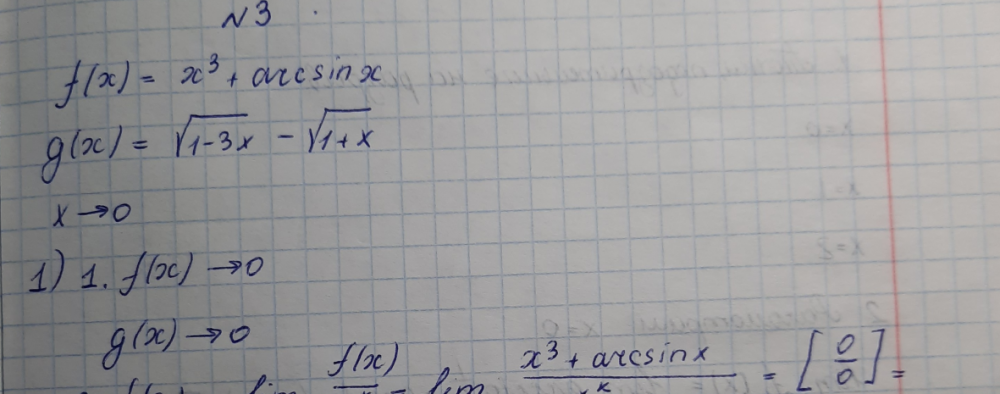 №3
f(x) = x³ + arcsin x
g(x) = √(1-3x) - √(1+x)
x → 0
1) 1. f(x) → 0
g(x) → 0
f(x) = lim x³ + arcsin x = [0/0] =